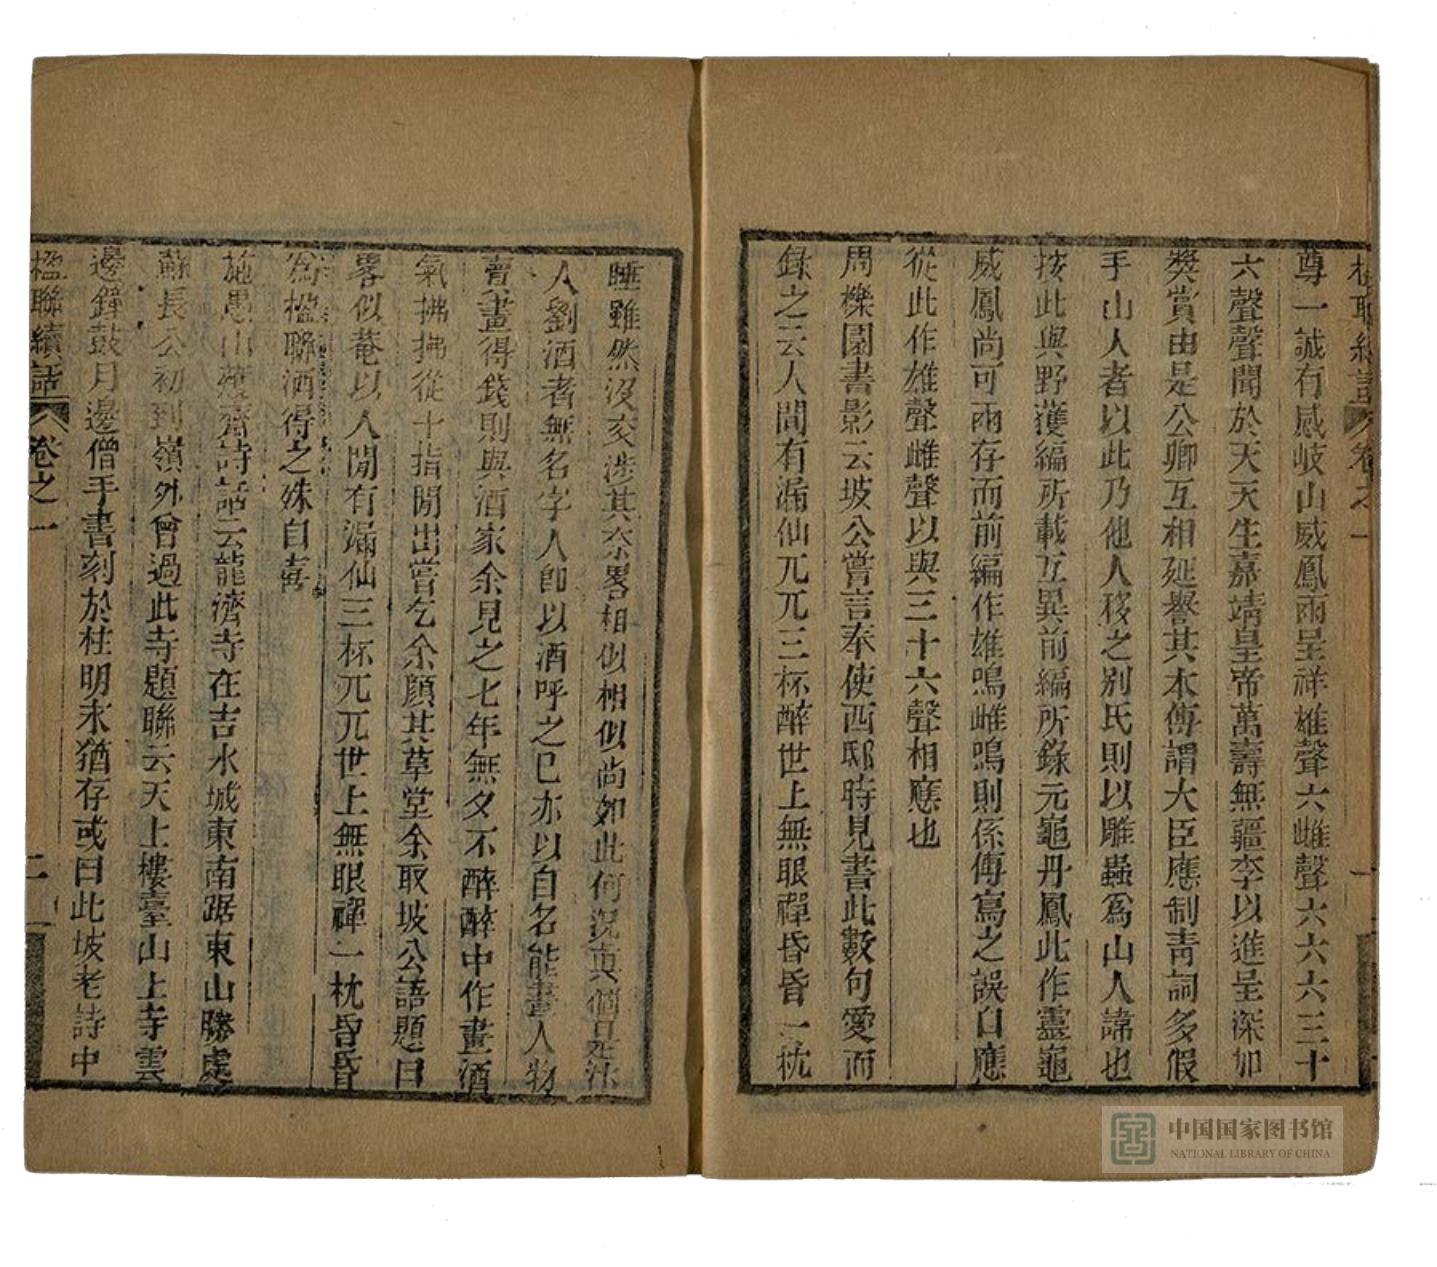 楹聯續話 卷之一
尊一誠有感岐山威鳳兩呈祥雄聲六雌聲六六六三十
六聲聲聞於天天生嘉靖皇帝萬壽無疆李以進呈深加
獎賞由是公卿互相延譽其本傳謂大臣應制青詞多假
手山人者以此乃他人移之別氏則以雕蟲爲山人諱也
按此與野獲編所載互異前編所錄元龜丹鳳此作靈龜
威鳳尚可兩存而前編作雄鳴雌鳴則係傳寫之誤自應
從此作雄聲雌聲以與三十六聲相應也
周櫟園書影云坡公嘗言奉使西邸時見書此數句愛而
錄之云人間有漏仙兀兀三杯醉世上無眼禪昏昏一枕
睡雖然沒交涉其奈畧相似相似尚如此何況真個是沛
人劉酒者無名字人卽以酒呼之已亦以自名能畫人物
賣畫得錢則與酒家余見之七年無夕不醉醉中作畫酒
氣拂拂從十指閒出嘗乞余顏其草堂余取坡公語題曰
畧似菴以人閒有漏仙三杯兀兀世上無眼禪一枕昏昏
爲楹聯酒得之殊自喜
施愚山 齋詩話云龍濟寺在吉水城東南踞東山勝處
蘇長公初到嶺外曾過此寺題聯云天上樓臺山上寺雲
邊鐘鼓月邊僧手書刻於柱明末猶存或曰此坡老詩中
楹聯續話 卷之一 二
中国国家图书馆
NATIONAL LIBRARY OF CHINA